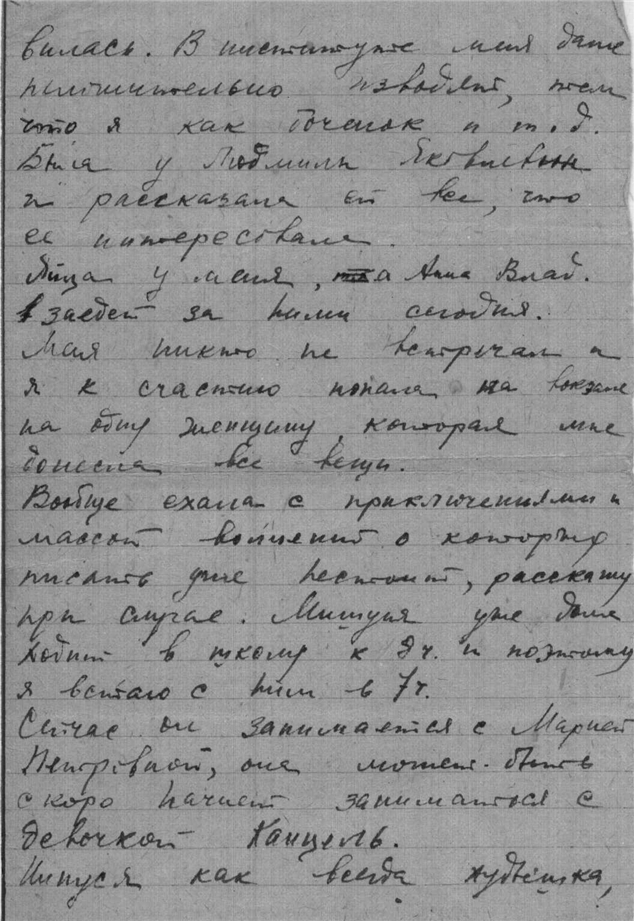 вилась. В институте меня даже
положительно изводят, тем
что я как боченок и т.д.
Была у Людмилы Яковлевны
и рассказала ей все, что
ее интересовало.
Яйца у меня, а Анна Влад.
заедет за ними сегодня.
Меня никто не встречал и
я к счастию попала на вокзале
на одну женщину, которая мне
донесла все вещи.
Вообще ехала с приключениями и
массой волнений о которых
писать уже нестоит, расскажу
при случае. Мишуня уже дома
ходит в школу к 9 ч. и поэтому
я встаю с ним в 7 ч.
Сейчас он занимается с Марией
Петровной, она может быть
скоро начнет заниматься с
девочкой Канцель.
как всегда худышка,